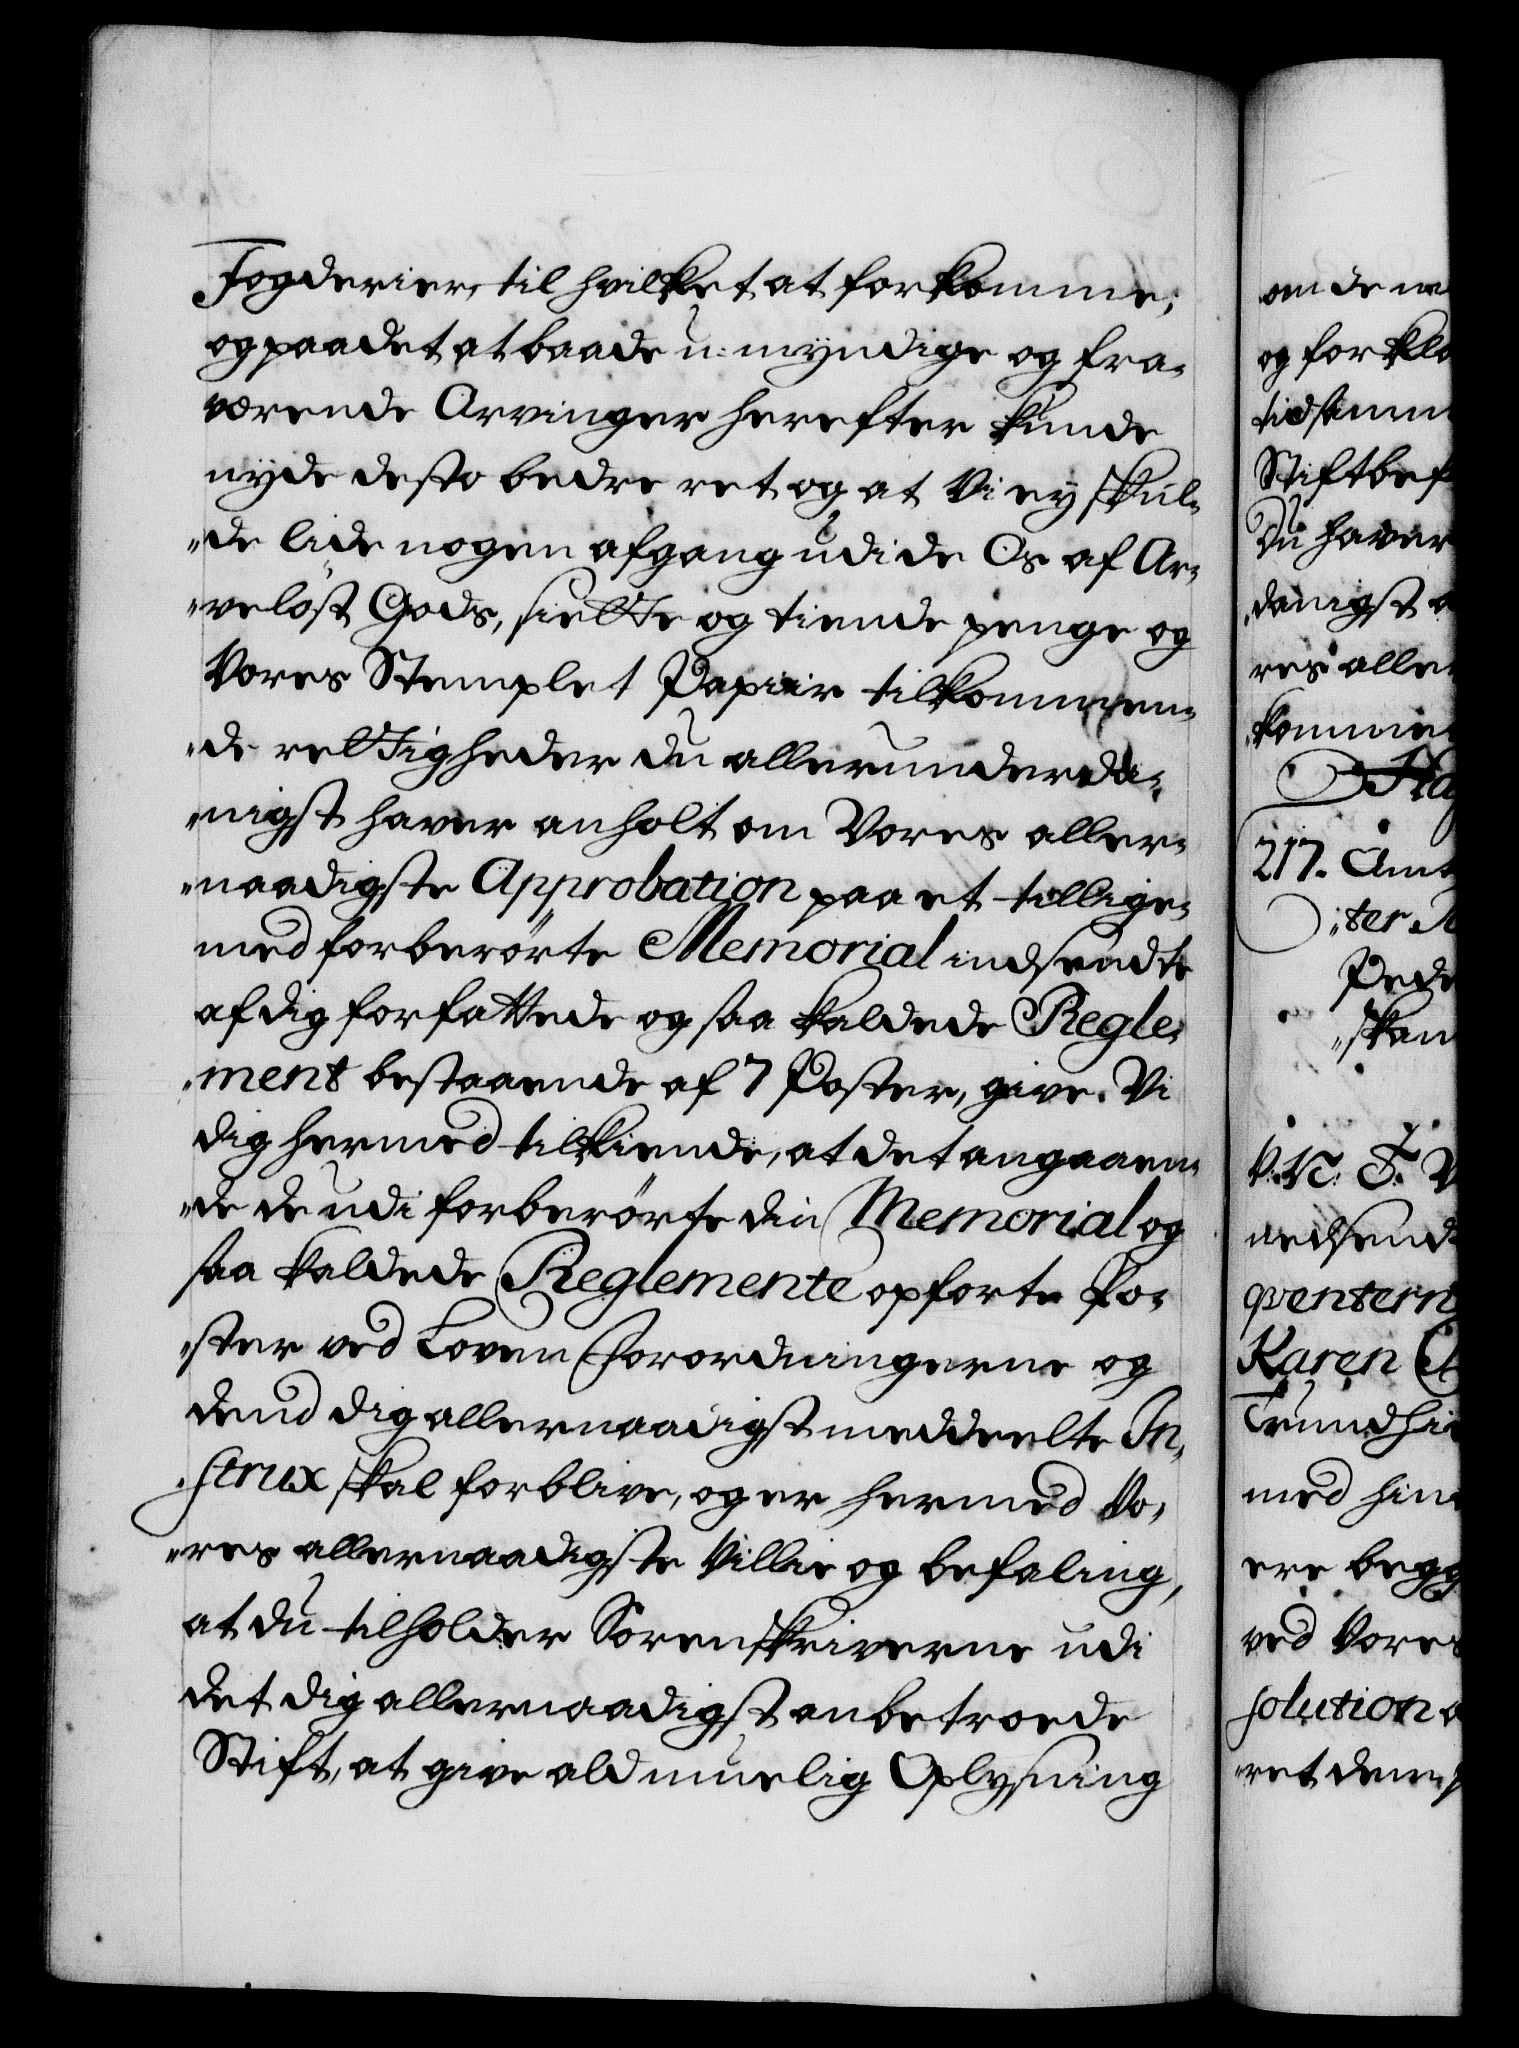 Fogderier, til hvilket at forkomme,
og paa det at baade u-myndige og fra-
værende Arvinger herefter kunde
nyde desto bedre ret og at Vi ey skul-
"de lide nogen afgang udi de Os af Ar-
"veløst Gods, siette og tiende penge og
Vores Stemplet Papiir tilkommen-
"de rettigheder du allerunderda-
"nigst haver anholt om Vores aller-
"naadigste Approbation paa et tillige-
med forberørte Memorial indsendte
af dig forfattede og saa kaldede Regle-
"ment bestaaende af 7 Poster, give Vi
dig hermed tilkiende, at det angaaen-
"de de udi forberørte din Memorial og
saa kaldede Reglemente opførte Po-
"ster ved Loven Forordningerne og
dend dig allernaadigst meddeelte In-
"strux skal forblive, og er hermed Vo-
"res allernaadigste Villie og befaling,
at du tilholder Sorenskriverne udi
det dig allernaadigst anbetroede
Stift, at give ald muelig Oplysning
om de
og forkla
Stiftbef
Du haver
danigst
res aller
komme
217. Amt
"ter
Pede
"skan
V. N. T. V
nedsend
qventern
Karen
Trundhi
med hin
ere begg
ved Vores
solution
"ret dem